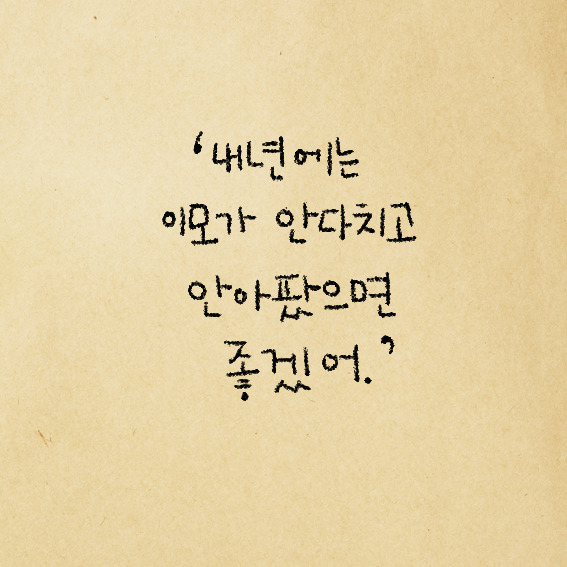 ‘내년에는
이모가 안다치고
안아팠으면
좋겠어.’